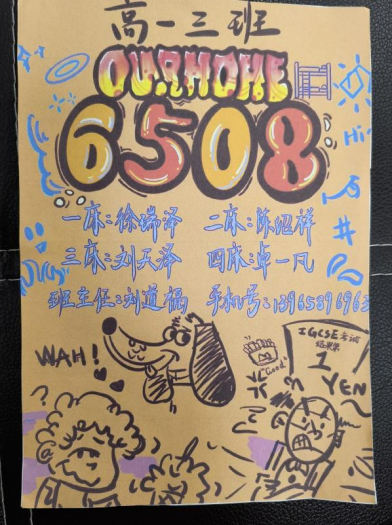 高一三班
OUR HOME
6508
Hi
一床:徐瑞泽 二床:陈绍祥
三床:刘天泽 四床:卓一凡
班主任:刘道福 手机号:13965896963
#
WAH!
"Good"
IGCSE考试
结果
1
YEN